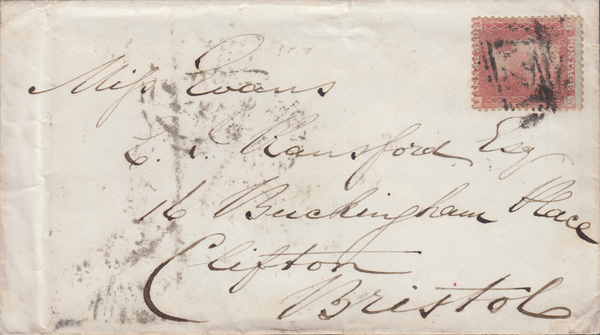 Miss Evans
E. S. Ransford Esq
16 Buckingham Place
Clifton
Bristol